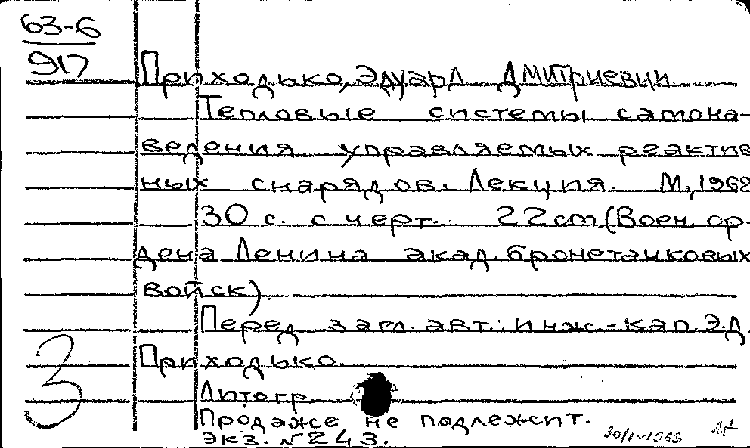 63-6
917
Приходько, Эдуард Дмитриевич
Тепловые системы самона-
ведения управляемых реактив
ных снарядов. Лекция. М, 1968
30 с. с черт. 22 cm (Воен ор-
дена Ленина акад. бронетанковых
войск).
Перед загл. авт.: инж.-кап Э.Д.
Приходько.
Литогр
Продаже не подлежит.
экз. №243.
3